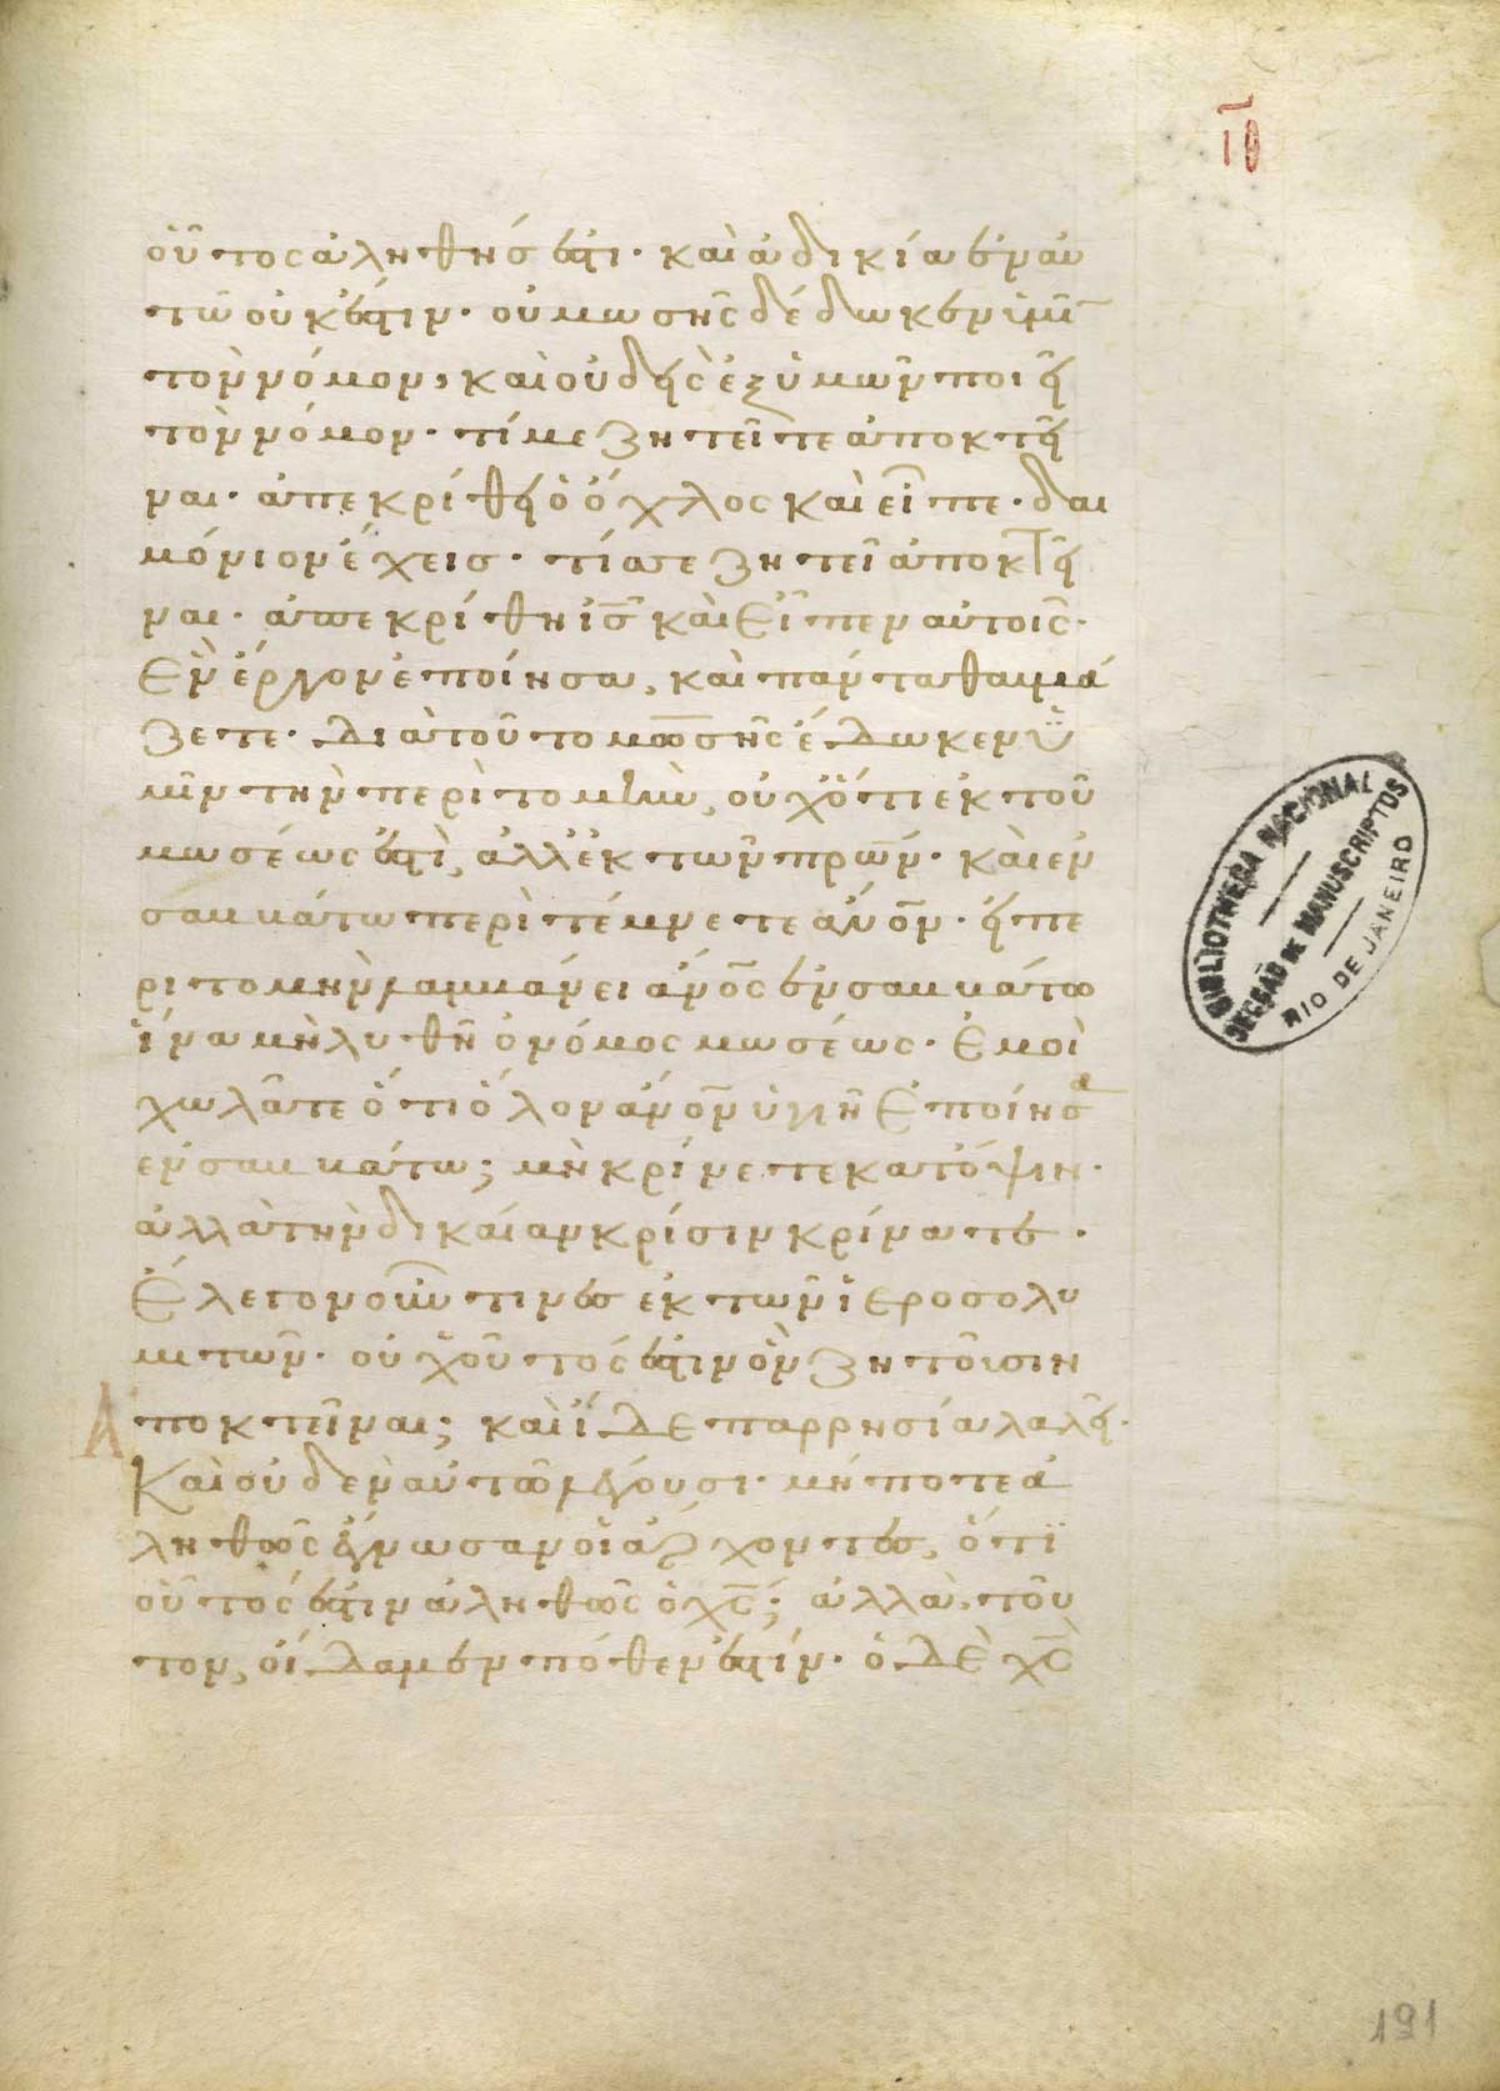 ιθ
οὗτος ἀληθής ἐστι· καὶ ἀδικία ἐν αυ
τῶ οὐκ ἔστιν· οὐ μωσῆς δέδωκεν ὑμῖ
τὸν νόμον, καὶ οὐδεὶς ἐξ ὑμῶν ποιεῖ
τὸν νόμον· τί με ζητεῖτε ἀποκτεῖ
ναι· ἀπεκρίθη ὁ ὄχλος καὶ εἶπε· δαι
μόνιον ἔχεις· τίς σε ζητεῖ ἀποκτεῖ
ναι· ἀπεκρίθη ις καὶ εἶπεν αὐτοῖς·
Ἓν ἔργον ἐποίησα, καὶ πάντα θαυμά
ζετε· διὰ τοῦτο μωσῆς ἔδωκεν ὑ
μῖν τὴν περιτομὴν, οὐχ ὅτι ἐκ τοῦ
μωσέως ἐστὶ, ἀλλ ἐκ τῶν πρων· καὶ ἐν
σαμκάτω περιτέμνετε ανον· εἰ πε
ριτομὴν λαμμάνει ανος ἐν σαμκάτω
ἵνα μὴ λυθῆ ὁ νόμος μωσέως· Ἐμοὶ
χωλᾶτε ὅτι ὅλον ανον ὑγιῆ ἐποίησα
ἐν σαμκάτω; μὴ κρίνετε κατ ὄψιν·
ἀλλὰ τὴν δικαίαν κρίσιν κρίνατε·
Ἔλεγον οὖν τινὲς ἐκ τῶν ἱεροσολυ
μιτῶν· οὐχ οὗτός ἐστιν ὃν ζητοῦσιν
ἀποκτεῖναι; καὶ ἴδε παρρησία λαλεῖ·
Καὶ οὐδὲν αὐτῶ λέγουσι· μήποτε ἀ
ληθῶς ἔγνωσαν οἱ ἄρχοντες, ὅτι
οὗτός ἐστιν ἀληθῶς ὁ χς; ἀλλὰ τοῦ
τον, οἴδαμεν πόθεν ἐστίν· ὁ δὲ χς
BIBLIOTHECA NACIONAL
SECÇÃO DE MANUSCRIPTOS
RIO DE JANEIRO
191